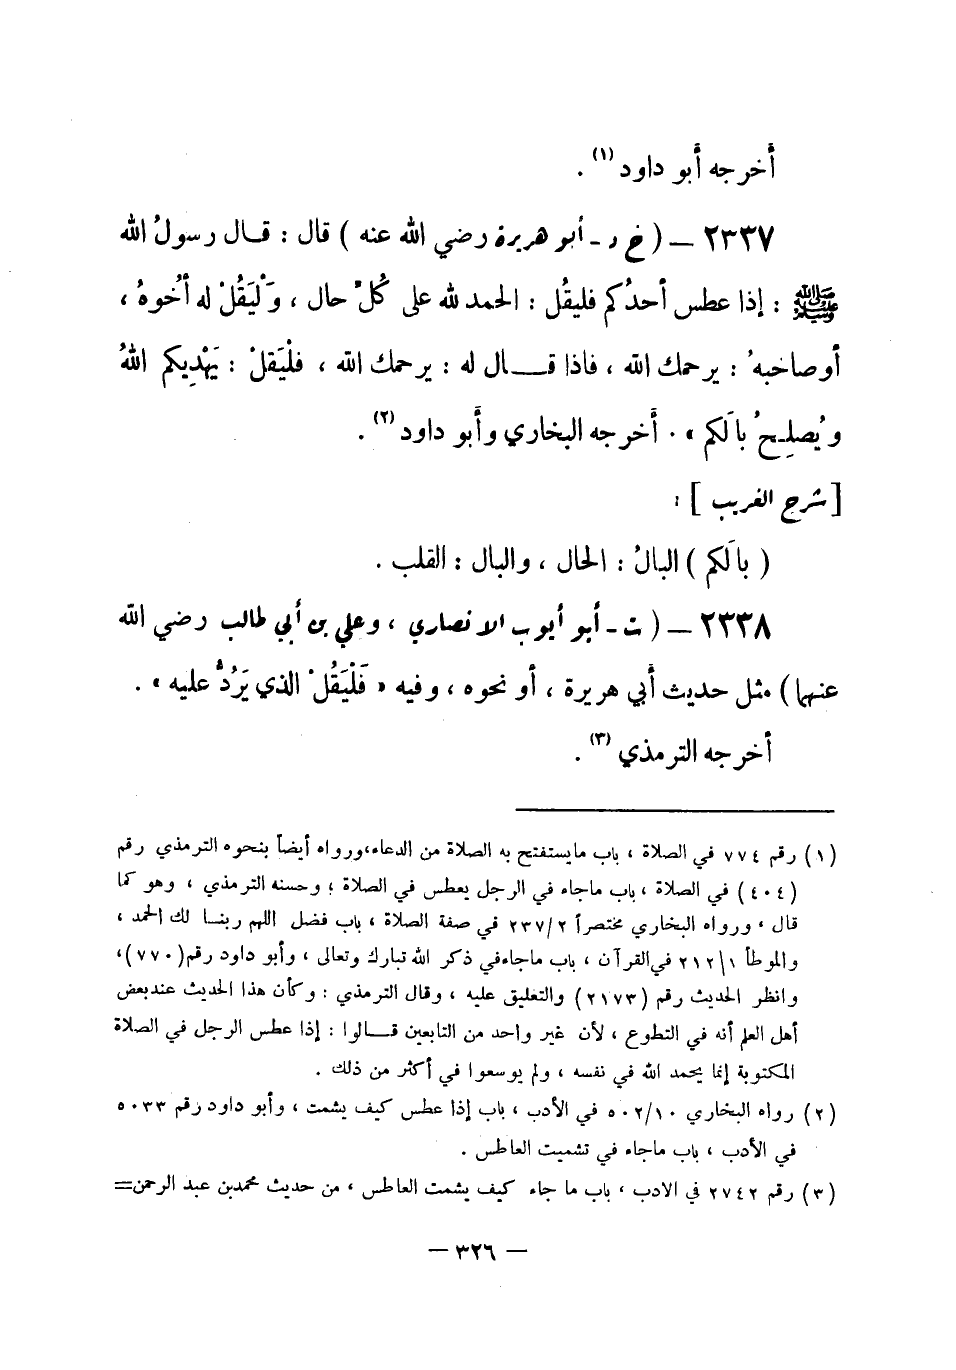 أخرجه أبو داود (١) .
٢٣٣٧ – ( خ د – أبو هريرة رضي الله عنه ) قال : قال رسولُ الله
ﷺ : إذا عطس أحدُكم فليقُل : الحمد لله على كُلِّ حال ، وَلْيَقُلْ له أخُوهُ ،
أو صاحبه ُ : يرحمك الله ، فاذا قال له : يرحمك الله ، فلْيَقلْ : يَهْدِيكم اللهُ
ويُصلِحُ بالَكم » . أخرجه البخاري وأبو داود (٢) .
[ شرح الغريب ] :
( بالَكم ) البالُ : الحال ، والبال : القلب .
٢٣٣٨ – ( ت – أبو أيوب الانصاري ، وعلي بن أبي طالب رضي الله
عنهما ) مثل حديث أبي هريرة ، أو نحوه ، وفيه « فَلْيَقُلْ الذي يَرُدُّ عليه » .
أخرجه الترمذي (٣) .
(١) رقم ٧٧٤ في الصلاة ، باب مايستفتح به الصلاة من الدعاء،ورواه أيضاً بنحوه الترمذي رقم
(٤٠٤) في الصلاة ، باب ماجاء في الرجل يعطس في الصلاة ؛ وحسنه الترمذي ، وهو كما
قال ، ورواه البخاري مختصراً ٢/٢٣٧ في صفة الصلاة ، باب فضل اللهم ربنا لك الحمد ،
والموطأ ١/٢١٢ في القرآن ، باب ماجاء في ذكر الله تبارك وتعالى ، وأبو داود رقم (٧٧٠)،
وانظر الحديث رقم (٢١٧٣) والتعليق عليه ، وقال الترمذي : وكأن هذا الحديث عند بعض
أهل العلم أنه في التطوع ، لأن غير واحد من التابعين قالوا : إذا عطس الرجل في الصلاة
المكتوبة إنما يحمد الله في نفسه ، ولم يوسعوا في أكثر من ذلك .
(٢) رواه البخاري ١٠/٥٠٢ في الأدب ، باب إذا عطس كيف يشمت ، وأبو داود رقم ٥٠٣٣
في الأدب ، باب ماجاء في تشميت العاطس .
(٣) رقم ٢٧٤٢ في الادب ، باب ما جاء كيف يشمت العاطس ، من حديث محمد بن عبد الرحمن=
– ٣٢٦ –